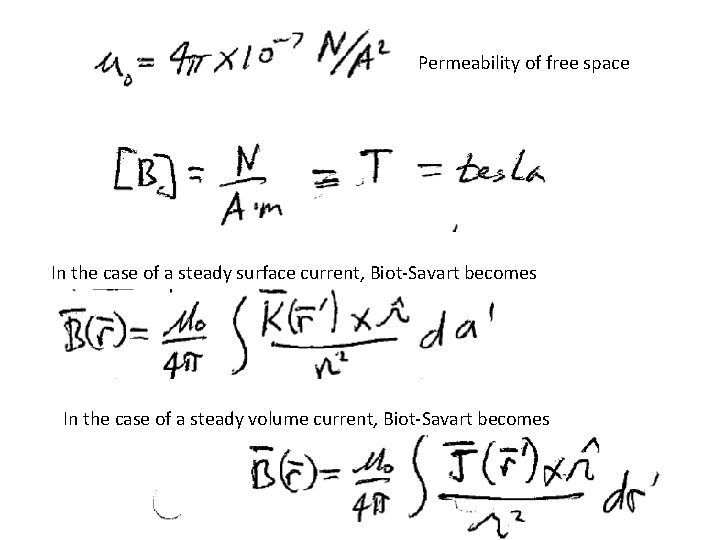 μ₀ = 4π × 10⁻⁷ N/A² Permeability of free space
[B] = N / A·m ≡ T = tesla
In the case of a steady surface current, Biot-Savart becomes
B̄(r̄) = μ₀/4π ∫ K̄(r̄′) × r̂ / r² da′
In the case of a steady volume current, Biot-Savart becomes
B̄(r̄) = μ₀/4π ∫ J̄(r̄′) × r̂ / r² dτ′